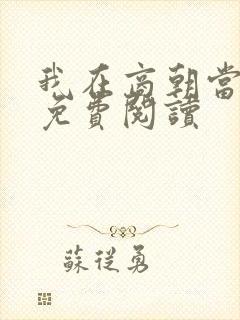 我在高朝當
免費閱讀
蘇從勇